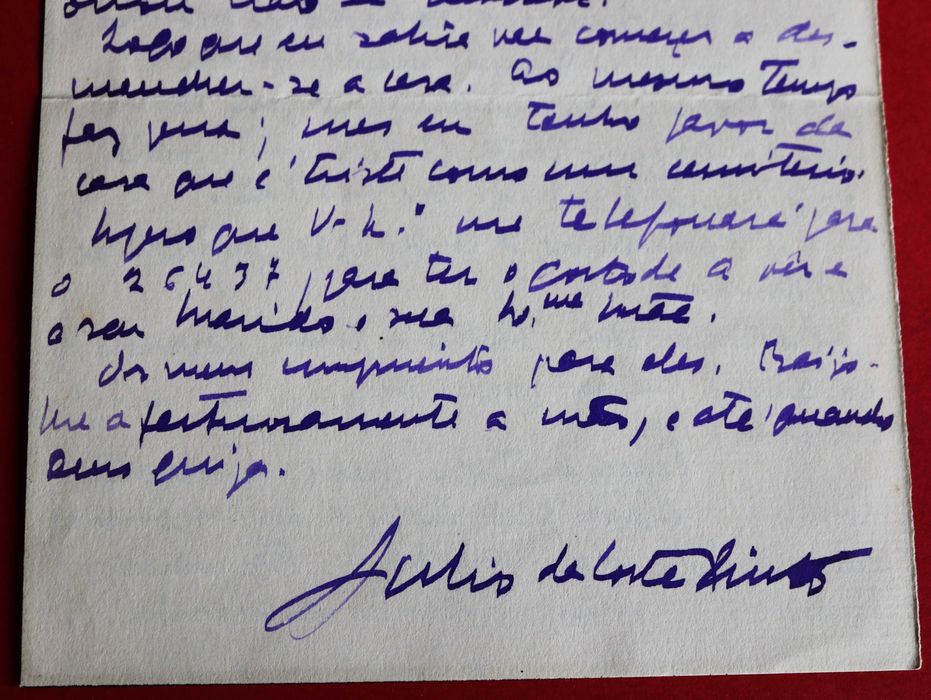 Logo que eu sahir vae começar a des-
manchar-se a casa. Ao mesmo tempo
faz pena; mas eu tenho pavor da
casa que é triste como um cemiterio.
Espero que V. Ex.ª me telefonará para
o 26437 para ter o gosto de a ver e
a seu marido e sua Ex.ma mãe.
Os meus cumprimentos para eles. Beijo-
lhe afectuosamente a mão, e até quando
Deus queira.
Julio da Costa Pinto